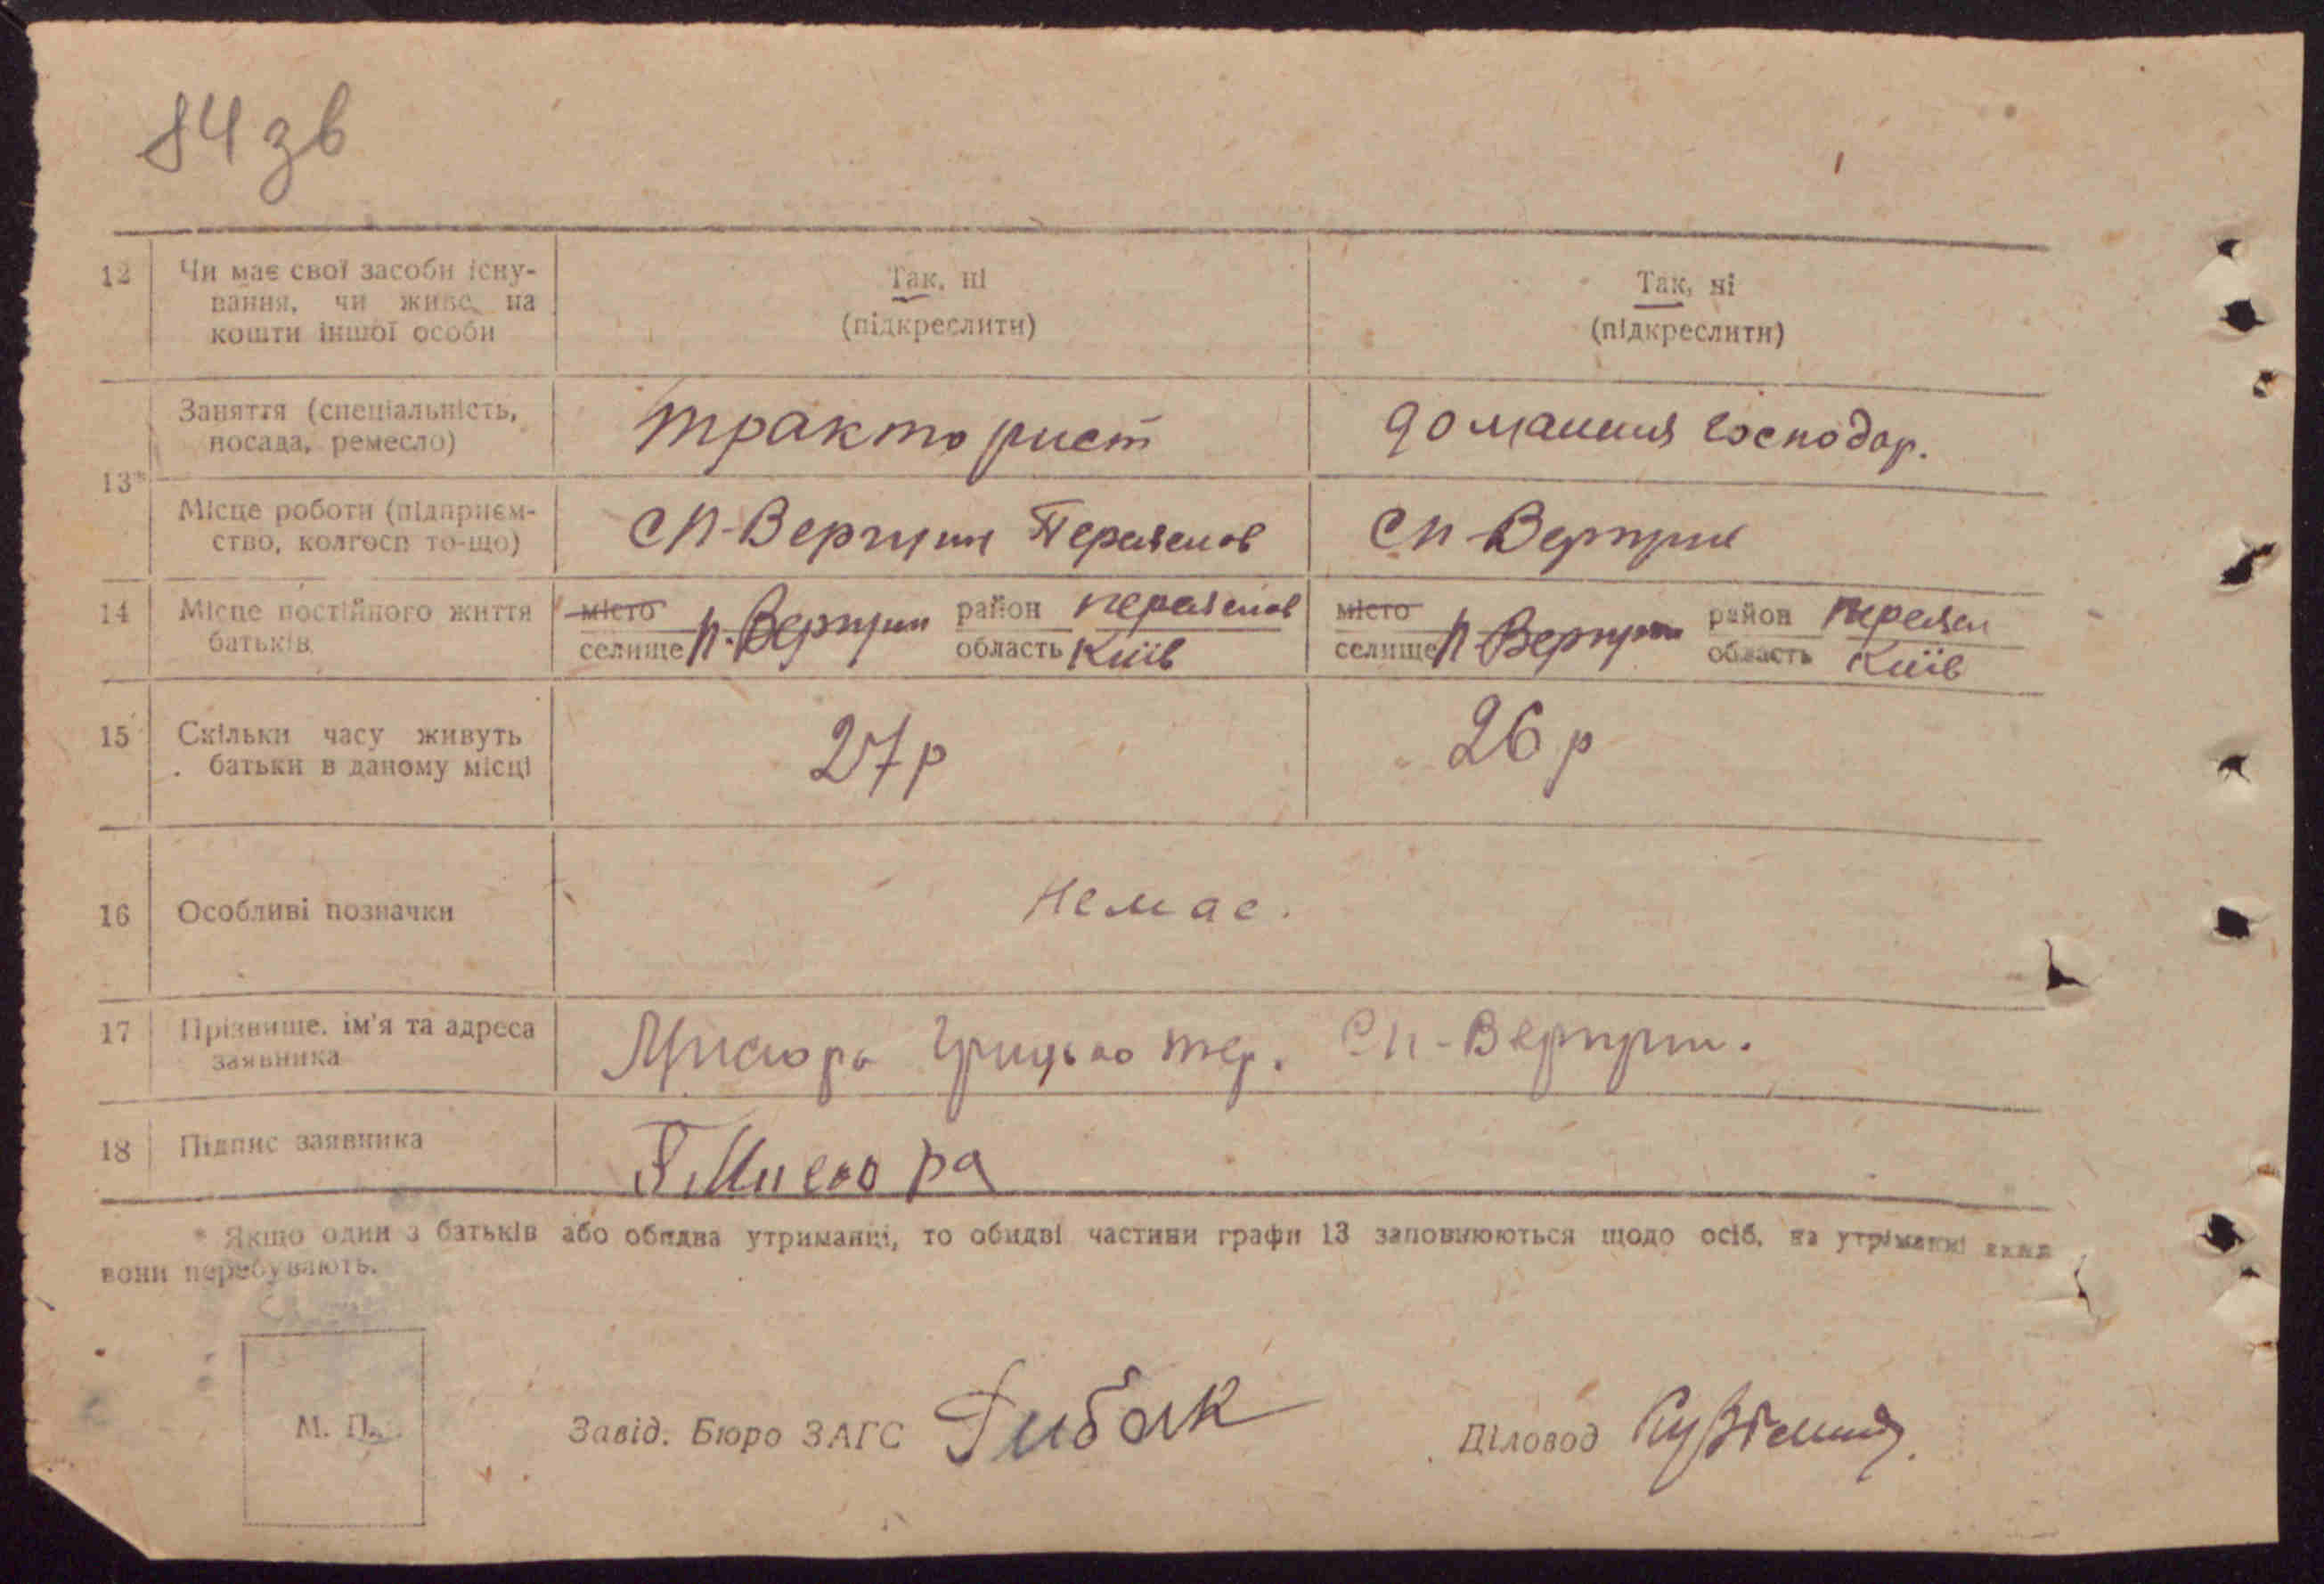 84 зв
12 Чи має свої засоби існу- Так, ні Так, ні
вання, чи живе на (підкреслити) (підкреслити)
кошти іншої особи
Заняття (спеціальність, тракторист домашня господар.
посада, ремесло)
13*
Місце роботи (підприєм- СП-Вергуни Переяслов СП-Вергуни
ство, колгосп то-що)
14 Місце постійного життя місто П. Вергуни район Переяслов місто П-Вергуни район Переясл
батьків селище область Київ селище область Київ
15 Скільки часу живуть 27 р 26 р
батьки в даному місці
16 Особливі позначки Немає.
17 Прізвище, ім'я та адреса Мисюра Грицько СП-Вергуни.
заявника
18 Підпис заявника Г. Мисюра
* Якщо один з батьків або обидва утриманці, то обидві частини графи 13 заповнюються щодо осіб, на утриманні яких
вони перебувають.
М. П.
Завід. Бюро ЗАГС Рибак Діловод